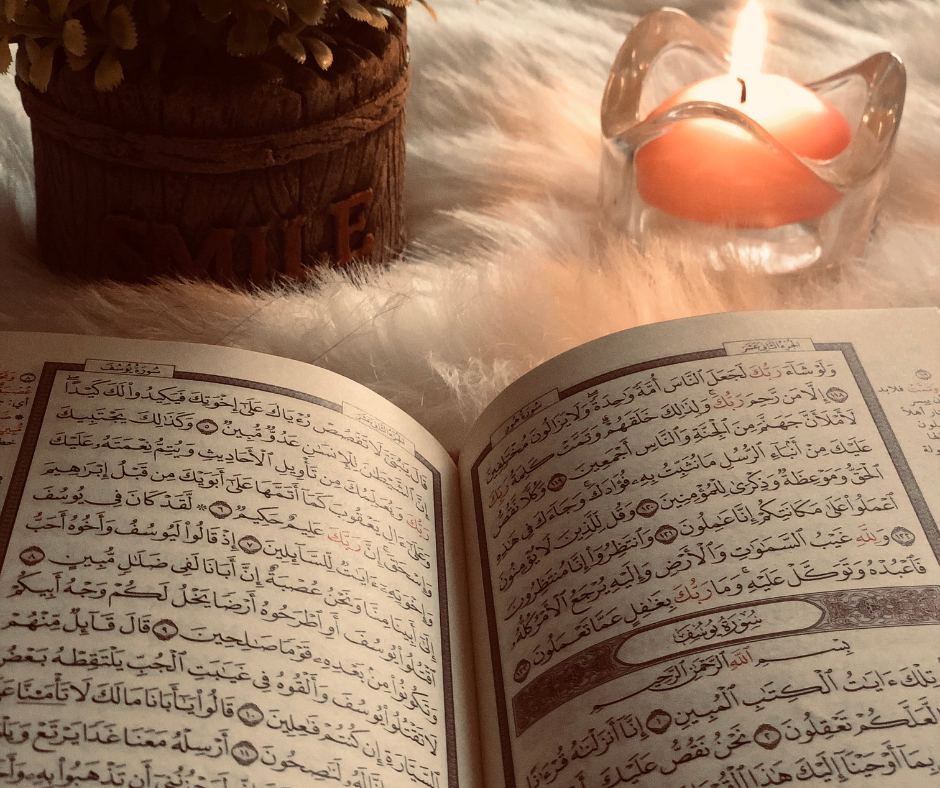 SMILE
سُورَةُ هُودٍ
الجُزْءُ الثَّانِي عَشَرَ
وَلَوْ شَآءَ رَبُّكَ لَجَعَلَ ٱلنَّاسَ أُمَّةً وَٰحِدَةً وَلَا يَزَالُونَ مُخْتَلِفِينَ
١١٨ إِلَّا مَن رَّحِمَ رَبُّكَ وَلِذَٰلِكَ خَلَقَهُمْ وَتَمَّتْ كَلِمَةُ رَبِّكَ
لَأَمْلَأَنَّ جَهَنَّمَ مِنَ ٱلْجِنَّةِ وَٱلنَّاسِ أَجْمَعِينَ ١١٩ وَكُلًّا نَّقُصُّ
عَلَيْكَ مِنْ أَنۢبَآءِ ٱلرُّسُلِ مَا نُثَبِّتُ بِهِۦ فُؤَادَكَ وَجَآءَكَ فِي هَٰذِهِ
ٱلْحَقُّ وَمَوْعِظَةٌ وَذِكْرَىٰ لِلْمُؤْمِنِينَ ١٢٠ وَقُل لِّلَّذِينَ لَا يُؤْمِنُونَ
ٱعْمَلُوا۟ عَلَىٰ مَكَانَتِكُمْ إِنَّا عَٰمِلُونَ ١٢١ وَٱنتَظِرُوٓا۟ إِنَّا مُنتَظِرُونَ
١٢٢ وَلِلَّهِ غَيْبُ ٱلسَّمَٰوَٰتِ وَٱلْأَرْضِ وَإِلَيْهِ يُرْجَعُ ٱلْأَمْرُ كُلُّهُۥ
فَٱعْبُدْهُ وَتَوَكَّلْ عَلَيْهِ وَمَا رَبُّكَ بِغَٰفِلٍ عَمَّا تَعْمَلُونَ ١٢٣
سُورَةُ يُوسُفَ
بِسْمِ ٱللَّهِ ٱلرَّحْمَٰنِ ٱلرَّحِيمِ
تِلْكَ ءَايَٰتُ ٱلْكِتَٰبِ ٱلْمُبِينِ ١ إِنَّآ أَنزَلْنَٰهُ قُرْءَٰنًا
لَّعَلَّكُمْ تَعْقِلُونَ ٢ نَحْنُ نَقُصُّ عَلَيْكَ
بِمَآ أَوْحَيْنَآ إِلَيْكَ هَٰذَا ٱلْقُرْءَانَ
سُورَةُ يُوسُفَ
الجُزْءُ الثَّانِي عَشَرَ
قَالَ يَٰبُنَيَّ لَا تَقْصُصْ رُءْيَاكَ عَلَىٰٓ إِخْوَتِكَ فَيَكِيدُوا۟ لَكَ كَيْدًا
إِنَّ ٱلشَّيْطَٰنَ لِلْإِنسَٰنِ عَدُوٌّ مُّبِينٌ ٥ وَكَذَٰلِكَ يَجْتَبِيكَ
رَبُّكَ وَيُعَلِّمُكَ مِن تَأْوِيلِ ٱلْأَحَادِيثِ وَيُتِمُّ نِعْمَتَهُۥ عَلَيْكَ
وَعَلَىٰٓ ءَالِ يَعْقُوبَ كَمَآ أَتَمَّهَا عَلَىٰٓ أَبَوَيْكَ مِن قَبْلُ إِبْرَٰهِيمَ
وَإِسْحَٰقَ إِنَّ رَبَّكَ عَلِيمٌ حَكِيمٌ ٦ ۞ لَّقَدْ كَانَ فِي يُوسُفَ
وَإِخْوَتِهِۦٓ ءَايَٰتٌ لِّلسَّآئِلِينَ ٧ إِذْ قَالُوا۟ لَيُوسُفُ وَأَخُوهُ أَحَبُّ
إِلَىٰٓ أَبِينَا مِنَّا وَنَحْنُ عُصْبَةٌ إِنَّ أَبَانَا لَفِي ضَلَٰلٍ مُّبِينٍ ٨
ٱقْتُلُوا۟ يُوسُفَ أَوِ ٱطْرَحُوهُ أَرْضًا يَخْلُ لَكُمْ وَجْهُ أَبِيكُمْ
وَتَكُونُوا۟ مِنۢ بَعْدِهِۦ قَوْمًا صَٰلِحِينَ ٩ قَالَ قَآئِلٌ مِّنْهُمْ
لَا تَقْتُلُوا۟ يُوسُفَ وَأَلْقُوهُ فِي غَيَٰبَتِ ٱلْجُبِّ يَلْتَقِطْهُ بَعْضُ
ٱلسَّيَّارَةِ إِن كُنتُمْ فَٰعِلِينَ ١٠ قَالُوا۟ يَٰٓأَبَانَا مَا لَكَ لَا تَأْمَ۫نَّا
لَنَٰصِحُونَ ١١ أَرْسِلْهُ مَعَنَا غَدًا يَرْتَعْ
أَن تَذْهَبُوا۟ بِهِۦ